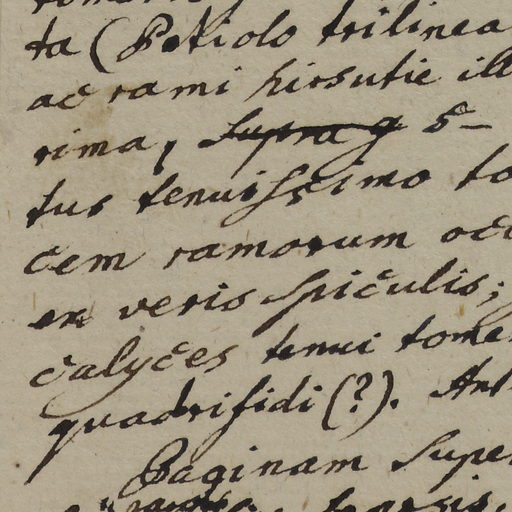 ta (Petiolo trilinea
ac rami hirsutie ill
rima, supra g 5–
tus tenuissimo to
cem ramorum occ
ex veris spiculis;
calyces tenui tomen
quadrifidi (?). Ant
Paginam super